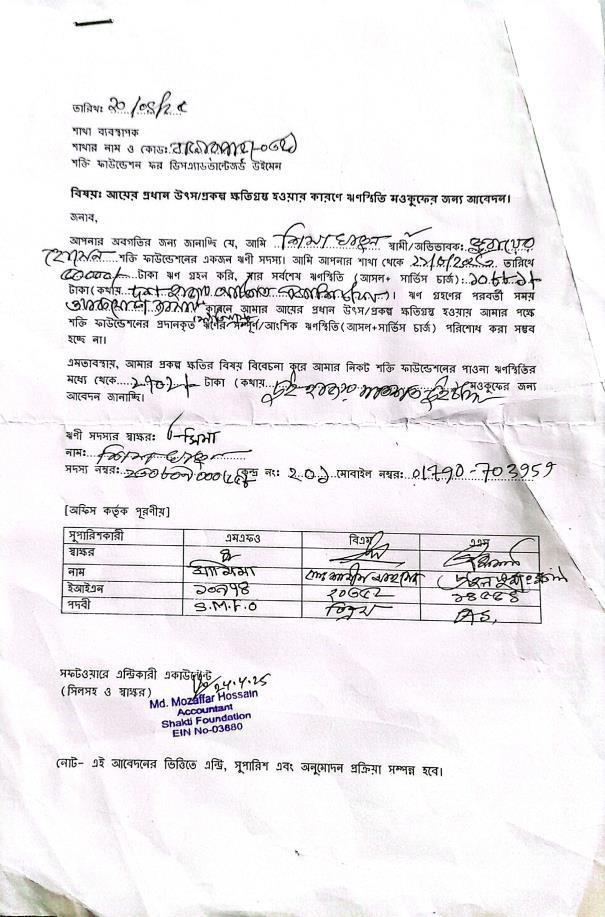 তারিখ: ২০/০৪/২৫
শাখা ব্যবস্থাপক
শাখার নাম ও কোড:
শক্তি ফাউন্ডেশন ফর ডিসএ্যাডভান্টেজর্ড উইমেন
বিষয়: আয়ের প্রধান উৎস/প্রকল্প ক্ষতিগ্রস্থ হওয়ার কারণে ঋণস্থিতি মওকুফের জন্য আবেদন।
জনাব,
আপনার অবগতির জন্য জানাচ্ছি যে, আমি স্বামী/অভিভাবক:
হোসেন শক্তি ফাউন্ডেশনের একজন ঋণী সদস্য। আমি আপনার শাখা থেকে তারিখে
৫০০০০/- টাকা ঋণ গ্রহন করি, যার সর্বশেষ ঋণস্থিতি (আসল+ সার্ভিস চার্জ):
টাকা(কথায় দশ হাজার )। ঋণ গ্রহণের পরবর্তী সময়
কারনে আমার আয়ের প্রধান উৎস/প্রকল্প ক্ষতিগ্রস্থ হওয়ায় আমার পক্ষে
শক্তি ফাউন্ডেশনের প্রদানকৃত ঋণের সম্পূর্ণ/আংশিক ঋণস্থিতি(আসল+সার্ভিস চার্জ) পরিশোধ করা সম্ভব
হচ্ছে না।
এমতাবস্থায়, আমার প্রকল্প ক্ষতির বিষয় বিবেচনা করে আমার নিকট শক্তি ফাউন্ডেশনের পাওনা ঋণস্থিতির
মধ্যে থেকে ২৭০২/- টাকা (কথায় দুই হাজার সাতশত দুই টাকা মওকুফের জন্য
আবেদন জানাচ্ছি।
ঋণী সদস্যর স্বাক্ষর:
নাম:
সদস্য নম্বর: কেন্দ্র নং: ২০১ মোবাইল নম্বর: 01790-703959
[অফিস কর্তৃক পূরণীয়]
সুপারিশকারী এমএফও বিএম এএস
স্বাক্ষর
নাম
ইআইএন ১০৭৭৪ ২০৬৫২ ১৪৫৫৪
পদবী S.M.F.O বিএম AS.
সফটওয়ারে এন্ট্রিকারী একাউন্টেন্ট
(সিলসহ ও স্বাক্ষর) 24.4.25
Md. Mozaffar Hossain
Accountant
Shakti Foundation
EIN No-03880
নোট- এই আবেদনের ভিত্তিতে এন্ট্রি, সুপারিশ এবং অনুমোদন প্রক্রিয়া সম্পন্ন হবে।